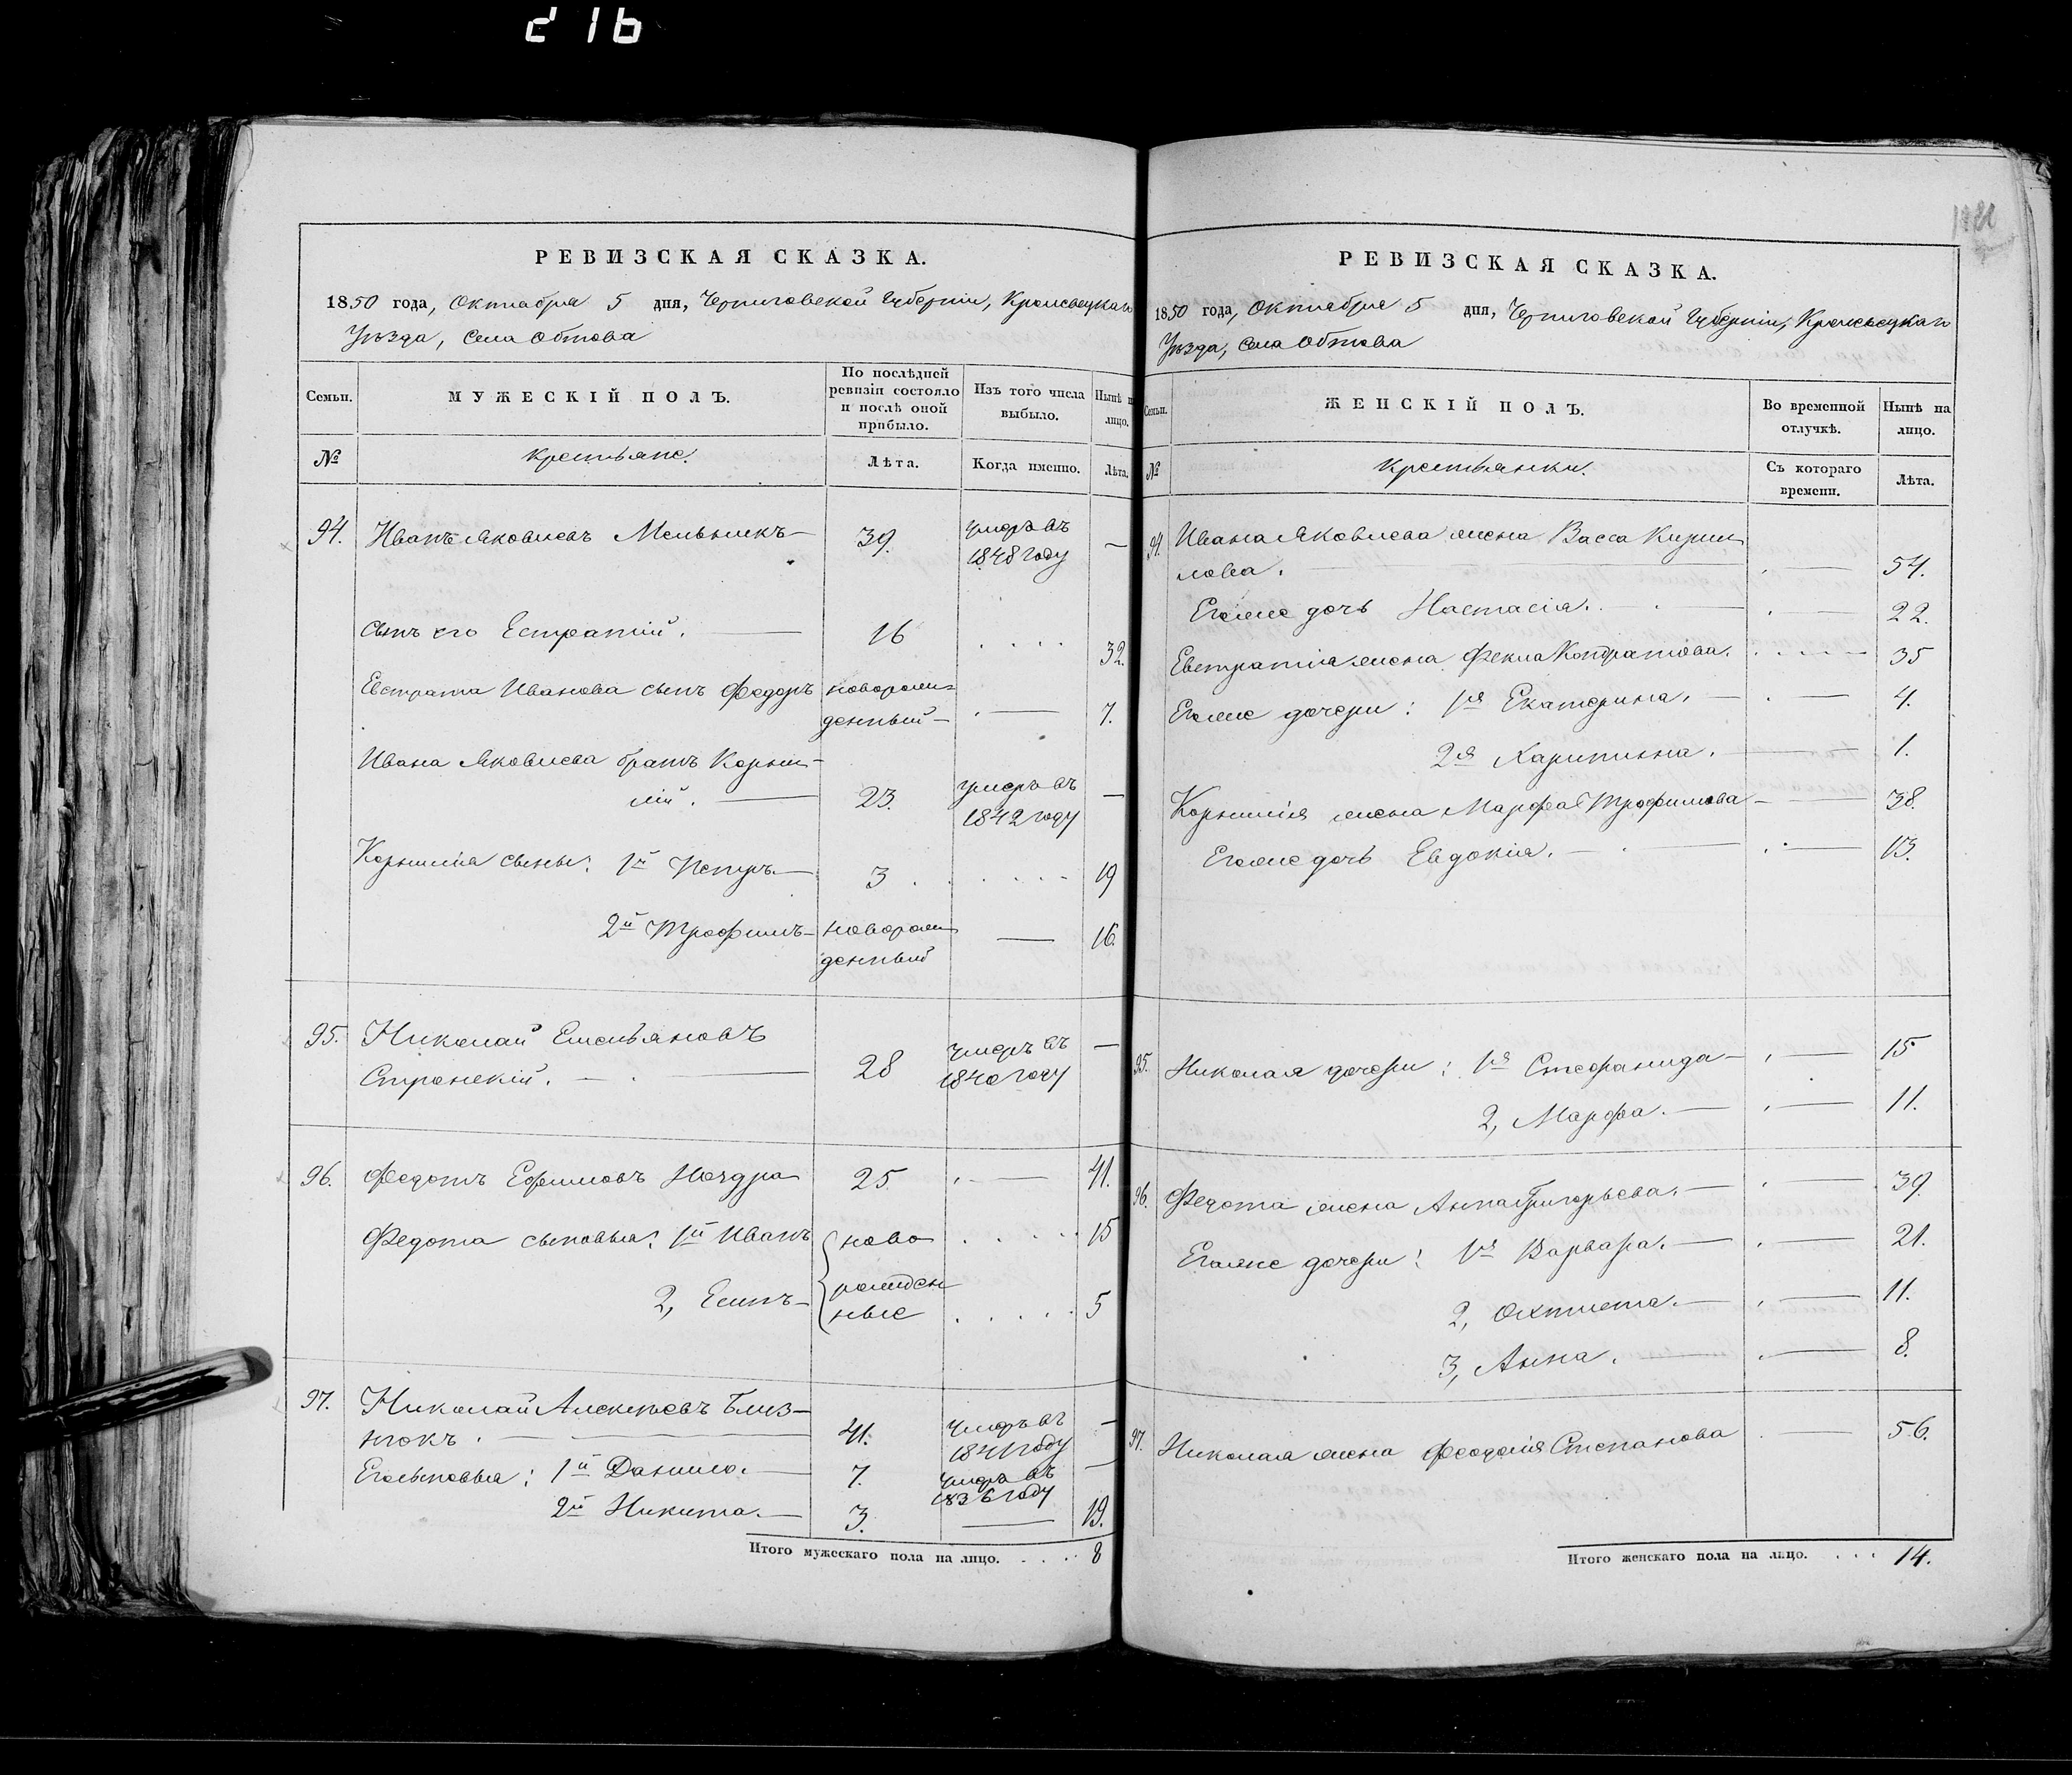 216
РЕВИЗСКАЯ СКАЗКА.
1850 года, Октября 5 дня, Черниговской Губерніи, Кролевецкаго
Уѣзда, Села Обтова
Семьи.
МУЖЕСКІЙ ПОЛЪ.
По послѣдней
ревизіи состояло
и послѣ оной
прибыло.
Изъ того числа
выбыло.
Нынѣ на
лицо.
№
Крестьяне.
Лѣта.
Когда именно.
Лѣта.
94. Иванъ Яковлевъ Мельникъ — 39. умеръ въ —
1848 году
сынъ его Естратій. — 16 . . . . 32.
Евстрата Иванова сынъ Федоръ новорож-
денный — . — 7.
Ивана Яковлева братъ Корни-
лій. — 23. умеръ въ —
1842 году
Корнилія сыны: 1й Петръ — 3 . . . . . 19
2й Трофимъ — новорож — 16.
денный
95. Николай Емельяновъ
Стронскій. — 28 умеръ въ —
1840 году
96. Федотъ Ефимовъ Ноздра 25 . — 41.
Федота сыновья: 1й Иванъ ново . . . . . 15
рожден
2, Есипъ — ные . . . . . 5
97. Николай Алексѣевъ Близ-
нюкъ. — 41. умеръ въ —
1841 году
Его сыновья: 1й Данило. — 7. умеръ въ —
1836 году
2й Никита. — 3. — 19.
Итого мужескаго пола на лицо. . . . . 8
РЕВИЗСКАЯ СКАЗКА.
1850 года, Октября 5 дня, Черниговской Губерніи, Кролевецкаго
Уѣзда, Села Обтова
Семьи.
ЖЕНСКІЙ ПОЛЪ.
Во временной
отлучкѣ.
Нынѣ на
лицо.
№
Крестьянки.
Съ котораго
времени.
Лѣта.
94. Ивана Яковлева жена Васса Кирил
лова. — . — 54.
Его же дочь Настасія. . — . — 22.
Евстратія жена Фекла Кондратіева. . . . . . 35
Его же дочери: 1я Екатерина. — . — 4.
2я Харитина. — 1.
Корнилія жена Марфа Трофимова — 38.
Его же дочь Евдокія. — . — 13.
95. Николая дочери: 1я Стефанида — . — 15
2, Марфа. — . — 11.
96. Федота жена Анна Григорьева. — . — 39.
Его же дочери: 1я Варвара. — . — 21.
2, Охтиста. — . — 11.
3, Анна. — . — 8.
97. Николая жена Феодосія Степанова . — 56.
Итого женскаго пола на лицо. . . . 14.